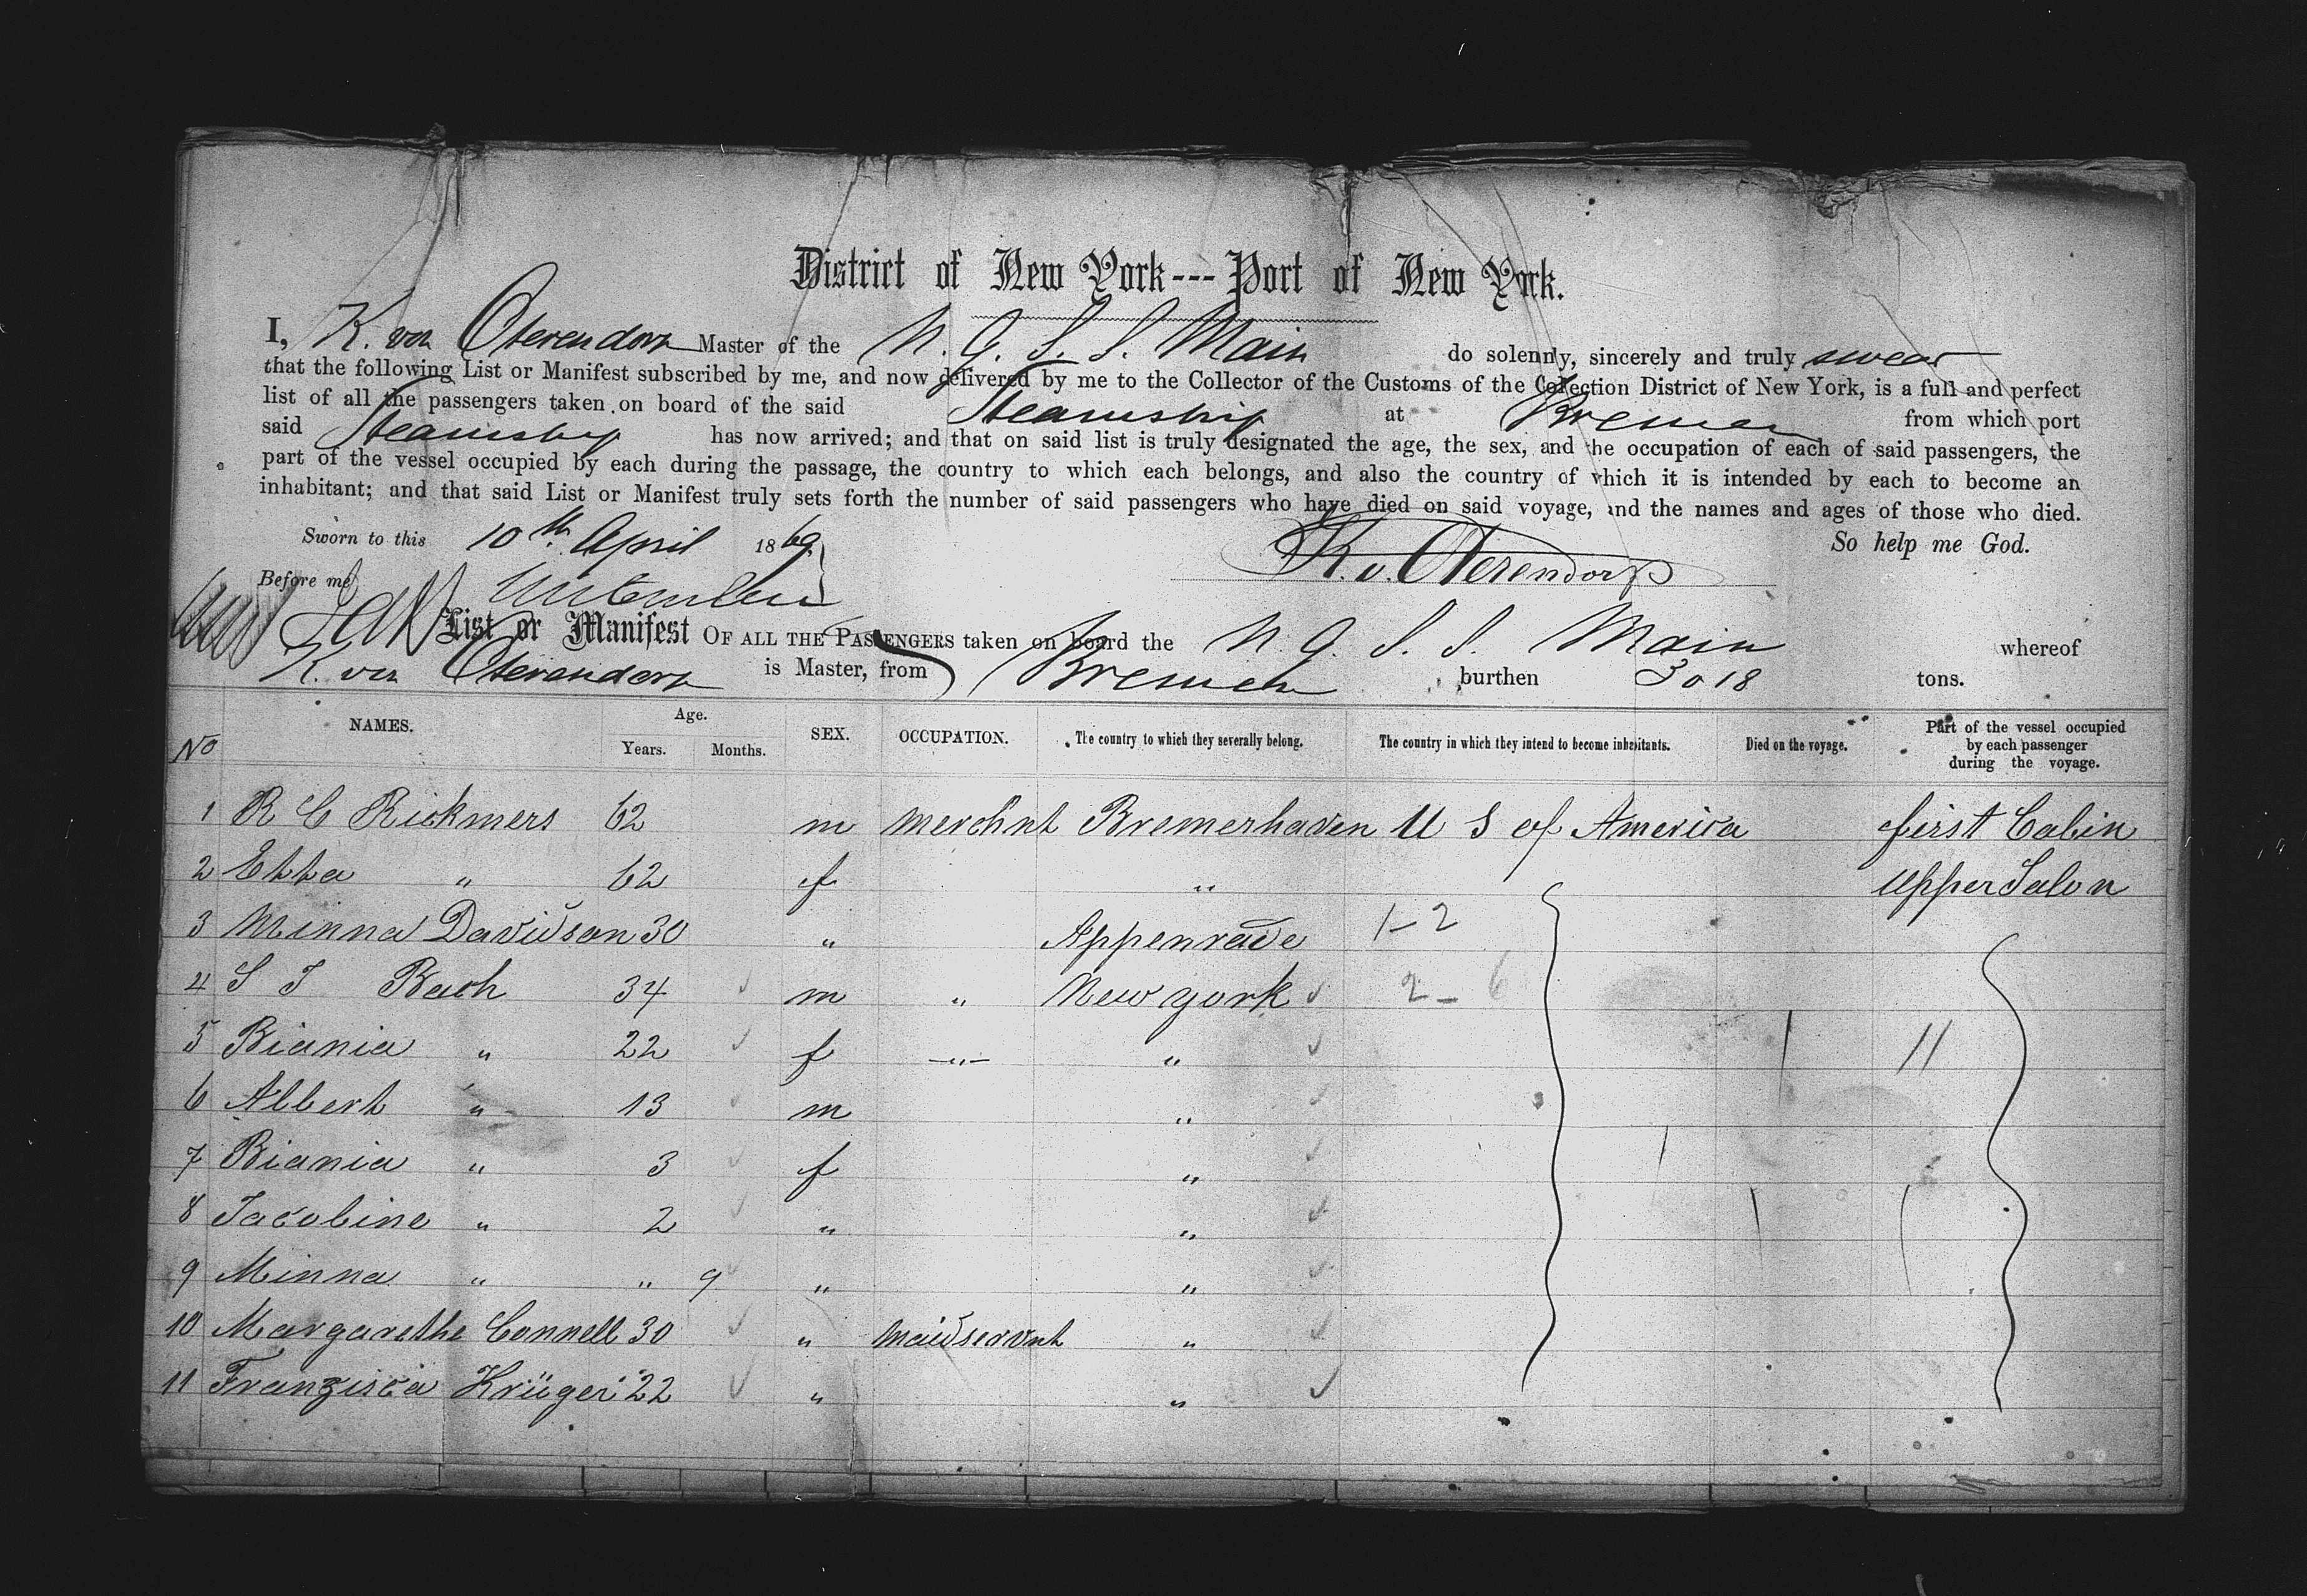 District of New York---Port of New York.
I, K. von Oterendorp Master of the N. G. S. S. Main do solemnly, sincerely and truly swear
that the following List or Manifest subscribed by me, and now delivered by me to the Collector of the Customs of the Collection District of New York, is a full and perfect
list of all the passengers taken on board of the said Steamship at Bremen from which port
said Steamship has now arrived; and that on said list is truly designated the age, the sex, and the occupation of each of said passengers, the
part of the vessel occupied by each during the passage, the country to which each belongs, and also the country of which it is intended by each to become an
inhabitant; and that said List or Manifest truly sets forth the number of said passengers who have died on said voyage, and the names and ages of those who died.
Sworn to this 10th April 1869 So help me God.
Before me K. v. Oterendorp
List or Manifest OF ALL THE PASSENGERS taken on board the N. G. S. S. Main whereof
K. von Oterendorp is Master, from Bremen burthen 3018 tons.
No NAMES. Age. Years. Months. SEX. OCCUPATION. The country to which they severally belong. The country in which they intend to become inhabitants. Died on the voyage. Part of the vessel occupied by each passenger during the voyage.
1 R C Rickmers 62 m merchnt Bremerhaven U S of America first Cabin
2 Etta " 62 f " upper Salon
3 Minna Davidson 30 " Appenrade 1-2
4 S J Bach 34 m " New york 2-6
5 Biania " 22 f -"- " 11
6 Albert " 13 m "
7 Biania " 3 f "
8 Jacobine " 2 " "
9 Minna " " 9 " "
10 Margarethe Connell 30 " maidservnt "
11 Franzisca Krüger 22 " "